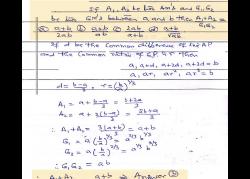 If A₁, A₂ be two AM's and G₁, G₂
be two GM's between a and b then A₁+A₂ / G₁G₂ =
(a) a+b / 2ab (b) 2ab / a+b (c) a+b / ab (d) a+b / √ab
If d be the common difference of the AP
and the common ratio of G.P. is r then
a, a+d, a+2d, a+3d = b
a, ar, ar², ar³ = b
d = b-a / 3, r = (b/a)^(1/3)
A₁ = a + b-a / 3 = b+2a / 3
A₂ = a + 2(b-a) / 3 = 2b+a / 3
∴ A₁+A₂ = 3(a+b) / 3 = a+b
G₁ = a(b/a)^(1/3) = a^(2/3) b^(1/3)
G₂ = a(b/a)^(2/3) = a^(1/3) b^(2/3)
∴ G₁G₂ = ab
∴ A₁+A₂ a+b Answer